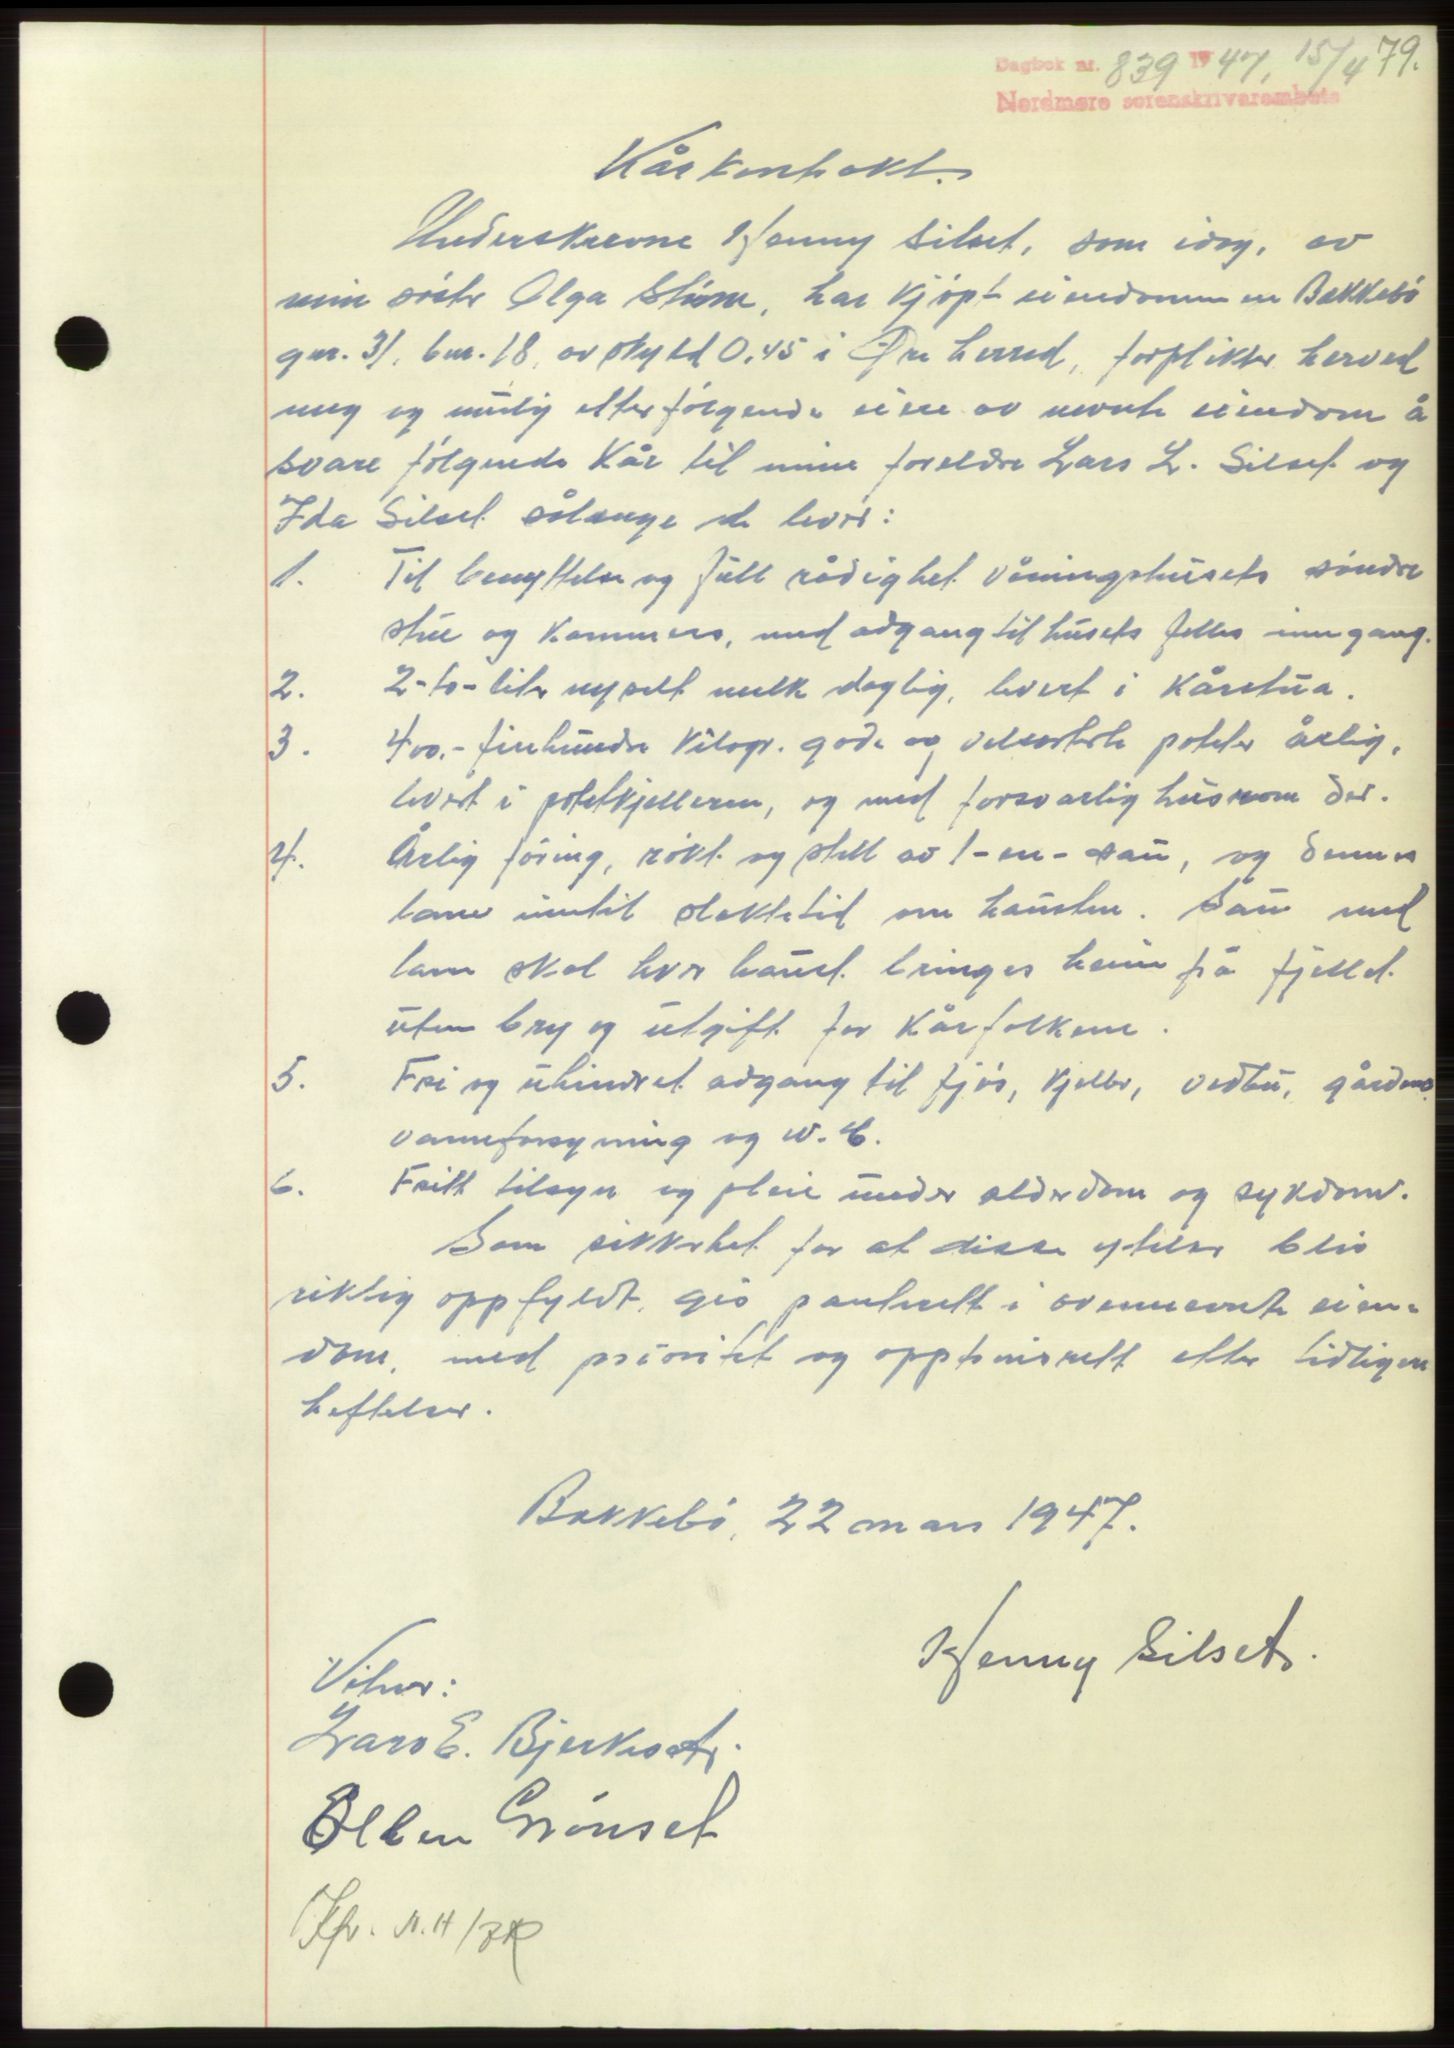 Dagbok nr. 839 1947, 15/4 79.
Nordmøre sorenskriverembete
Kårkontrakt.
Underskrevne Henny Silset, som idag, av
min søster Olga Sturm, har kjøpt eiendommen Bakkebø
gnr. 31, bnr. 18, av skyld 0,45 i Øre herred, forplikter herved
meg og mulig etterfølgende eiere av nevnte eiendom å
svare følgende kår til mine foreldre Lars L. Silset og
Ida Silset sålenge de lever:
1. Til benyttelse og full rådighet våningshusets søndre
stue og kammers, med adgang til husets felles inngang.
2. 2-to-liter nysilt melk daglig, levert i kårstua.
3. 400.- firehundre kilogr. gode og velsorterte poteter årlig,
levert i potetkjelleren, og med forsvarlig husrom der.
4. Årlig fôring, røkt og stell av 1-en-sau, og dennes
lam inntil slaktetid om høsten. Sau med
lam skal hver høst bringes heim fra fjellet
uten bry og utgift for kårfolkene.
5. Fri og uhindret adgang til fjøs, kjeller, vedbu, gårdens
vannforsyning og W.C.
6. Fritt tilsyn og pleie under alderdom og sykdom.
Som sikkerhet for at disse ytelser blir
riktig oppfyldt, gis panterett i ovennevnte eien-
dom, med prioritet og opptrinsrett etter tidligere
heftelser.
Bakkebø, 22 mars 1947.
Henny Silset.
Vitner:
Lars E. Bjerkeset.
Ellen Grønset
Jfr. N.H/